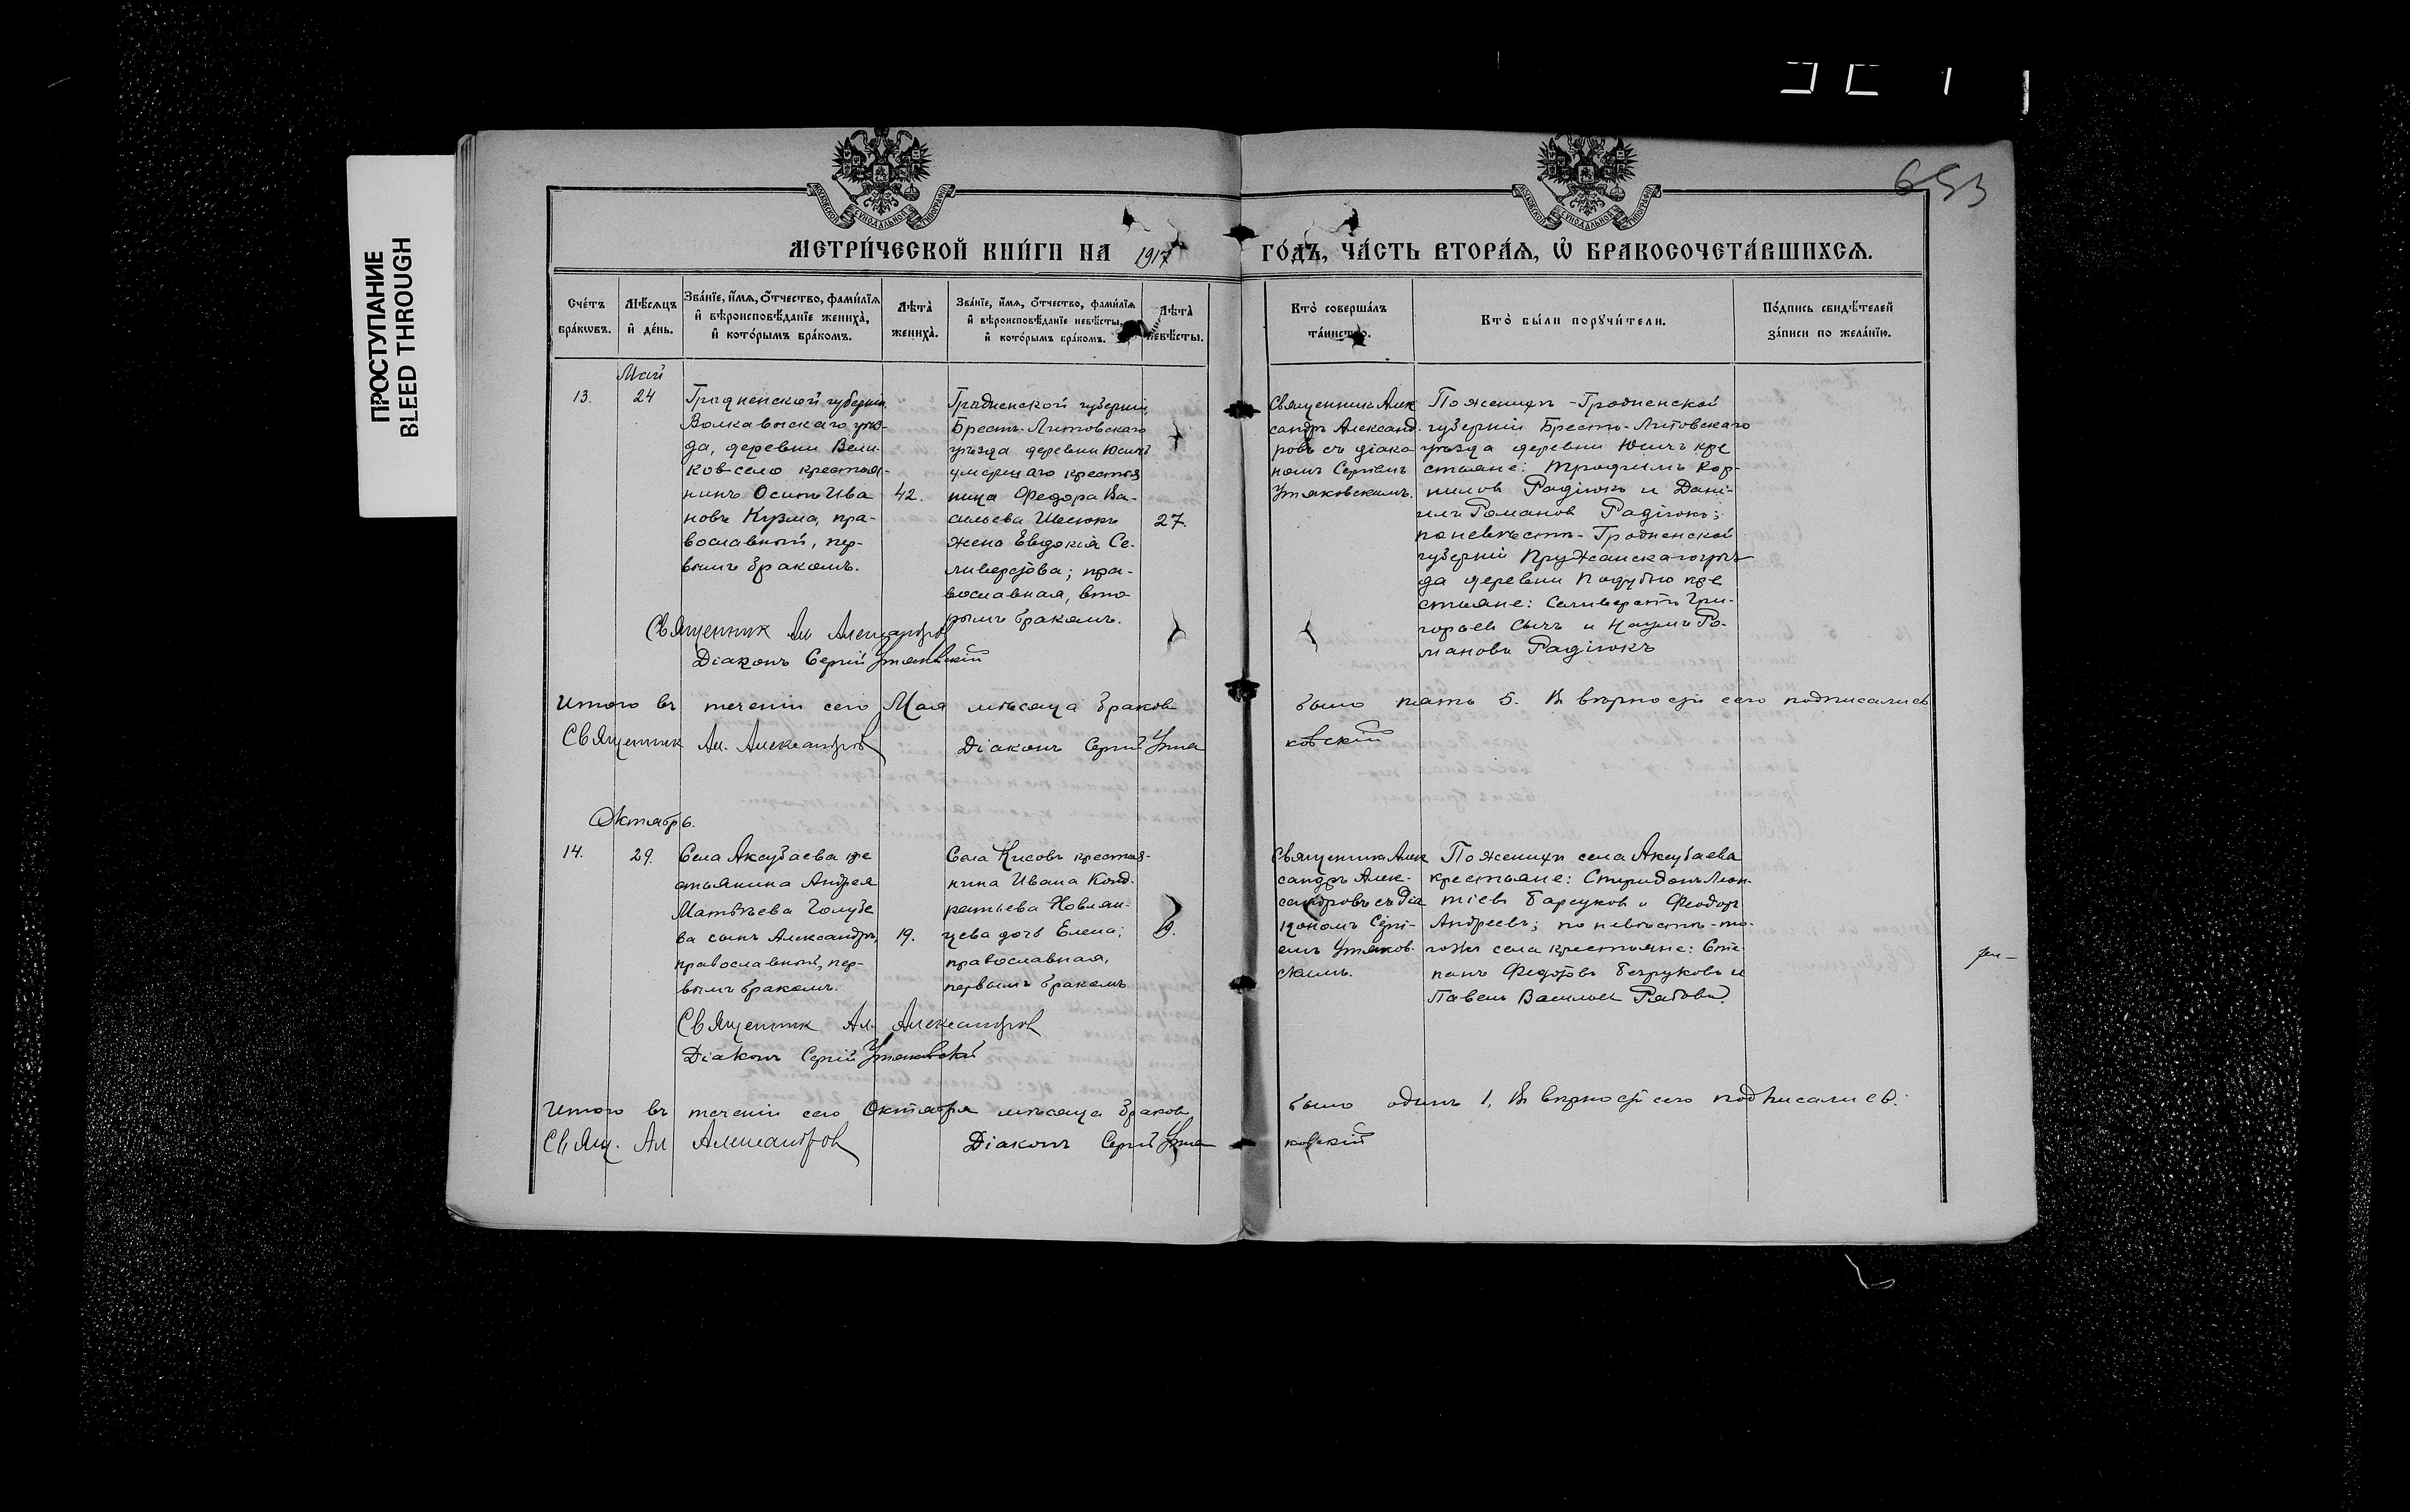 ПРОСТУПАНИЕ
BLEED THROUGH
653
МЕТРИ́ЧЕСКОЙ КНИ́ГИ НА 1917 ГО́ДЪ, ЧА́СТЬ ВТОРА́Я, Ѽ БРАКОСОЧЕТА́ВШИХСЯ.
Сче́тъ бра́кѡвъ.
Мѣ́сяцъ и҆ де́нь.
Зва́нїе, и҆́мя, ѻ҆́тчество, фами́лїя и҆ вѣроисповѣ́данїе жениха̀, и҆ кото́рымъ бра́комъ.
Лѣ́та жениха̀.
Зва́нїе, и҆́мя, ѻ҆́тчество, фами́лїя и҆ вѣроисповѣ́данїе невѣ́сты, и҆ кото́рымъ бра́комъ.
Лѣ́та невѣ́сты.
Кто̀ соверша́лъ та́инство.
Кто̀ бы́ли поручи́тели.
По́дпись свидѣ́телей за́писи по жела́нїю.
Май
13.
24
Гродненской губернии,
Волковыскаго уѣз-
да, деревни Вели-
ков-село крестья-
нинъ Осипъ Ива
новъ Кузма, пра-
вославный, пер-
вымъ бракомъ.
42.
Гродненской губерніи,
Брестъ-Литовскаго
уѣзда деревни
умершаго крестья
нина Федора Ва-
сильева
жена Евдокія Се-
ливерстова; пра-
вославная, вто-
рымъ бракомъ.
27.
Священникъ Алек
сандръ Александ-
ровъ съ діако
номъ Сергіемъ
Утяковскимъ.
По женихѣ - Гродненской
губерніи Брестъ-Литовскаго
уѣзда деревни кре
стьяне: Трофимъ Кор-
ниловъ Радіюкъ и Дані-
илъ Романовъ Радіюкъ;
по невѣстѣ - Гродненской
губерніи Пружанскаго уѣз-
да деревни Поддубно кре
стьяне: Селиверстъ Гри-
горьевъ Сычъ и Наумъ Ро-
мановъ Радіюкъ
Священник Ал Александров
Діаконъ Сергій Утяковскій
Итого въ теченіи сего Мая мѣсяца браков было пять 5. В вѣрности сего подписались
Священник Ал. Александров Діаконъ Сергій Утяковскій
Октябрь.
14.
29.
Села Аксубаева кре
стьянина Андрея
Матвѣева Голубе
ва сынъ Александръ,
православный, пер-
вымъ бракомъ.
19.
Села Кисовъ крестья-
нина Ивана Конд-
ратьева Новлян-
цева дочь Елена;
православная,
первымъ бракомъ
19.
Священникъ Алек
сандръ Алек-
сандровъ съ діа
кономъ Сергі-
емъ Утяков-
скимъ.
По женихѣ села Аксубаева
крестьяне: Спиридонъ Леон-
тіевъ Барсуков и Феодоръ
Андреевъ; по невѣстѣ - то-
гоже села крестьяне: Сте-
панъ Федотовъ Безруковъ и
Павелъ Васильев Рябовъ.
Священник Ал. Александров
Діаконъ Сергій Утяковскій
Итого въ теченіи сего Октября мѣсяца браков было одинъ 1. В вѣрности сего подписались:
Свящ. Ал Александров Діаконъ Сергій Утяковскій